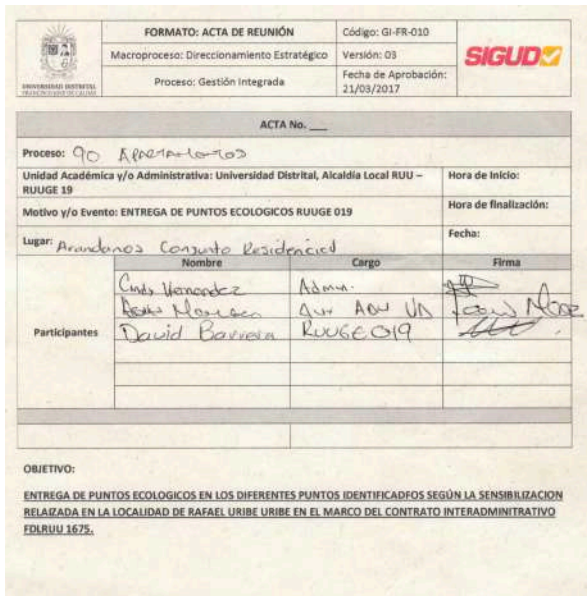 FORMATO: ACTA DE REUNIÓN
Código: GI-FR-010
Macroproceso: Direccionamiento Estratégico
Versión: 03
Proceso: Gestión Integrada
Fecha de Aprobación:
21/03/2017
SIGUD
UNIVERSIDAD DISTRITAL
FRANCISCO JOSÉ DE CALDAS
ACTA No. ___
Proceso: 90 Apartamentos
Unidad Académica y/o Administrativa: Universidad Distrital, Alcaldía Local RUU –
RUUGE 19
Hora de Inicio:
Motivo y/o Evento: ENTREGA DE PUNTOS ECOLOGICOS RUUGE 019
Hora de finalización:
Lugar: Arandanos Conjunto Residencial
Fecha:
Nombre
Cargo
Firma
Participantes
Cindy Hernandez
Admin.
Aux ADM UD
David Barrera
RUUGE019
OBJETIVO:
ENTREGA DE PUNTOS ECOLOGICOS EN LOS DIFERENTES PUNTOS IDENTIFICADFOS SEGÚN LA SENSIBILIZACION
RELAIZADA EN LA LOCALIDAD DE RAFAEL URIBE URIBE EN EL MARCO DEL CONTRATO INTERADMINITRATIVO
FDLRUU 1675.